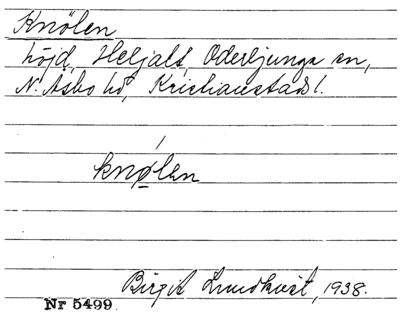 Knölen
höjd, Heljalt, Oderljunga sn,
N. Åsbo hd, Kristianstads l.
knølen
Birgit Lundkvist, 1938.
Nr 5499